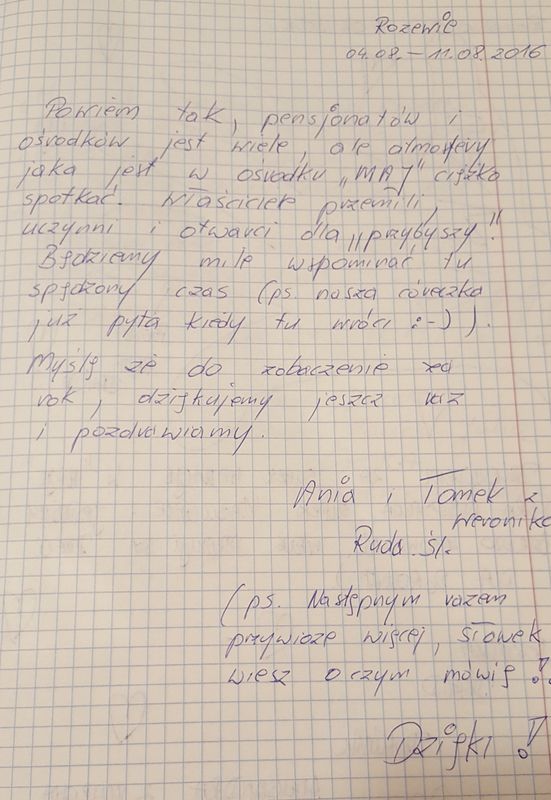 Rozewie
04.08. – 11.08.2016
Powiem tak, pensjonatów i
ośrodków jest wiele, ale atmosfery
jaka jest w ośrodku „MAJ" ciężko
spotkać. Właściciele przemili,
uczynni i otwarci dla „przybyszy".
Będziemy mile wspominać tu
spędzony czas (ps. nasza córeczka
już pyta kiedy tu wróci :-) ).
Myślę że do zobaczenie za
rok, dziękujemy jeszcz raz
i pozdrawiamy.
Ania i Tomek z
Weroniką
Ruda Śl.
(ps. Następnym razem
przywiozę więcej, Sławek
wiesz o czym mówię !!
Dzięki !